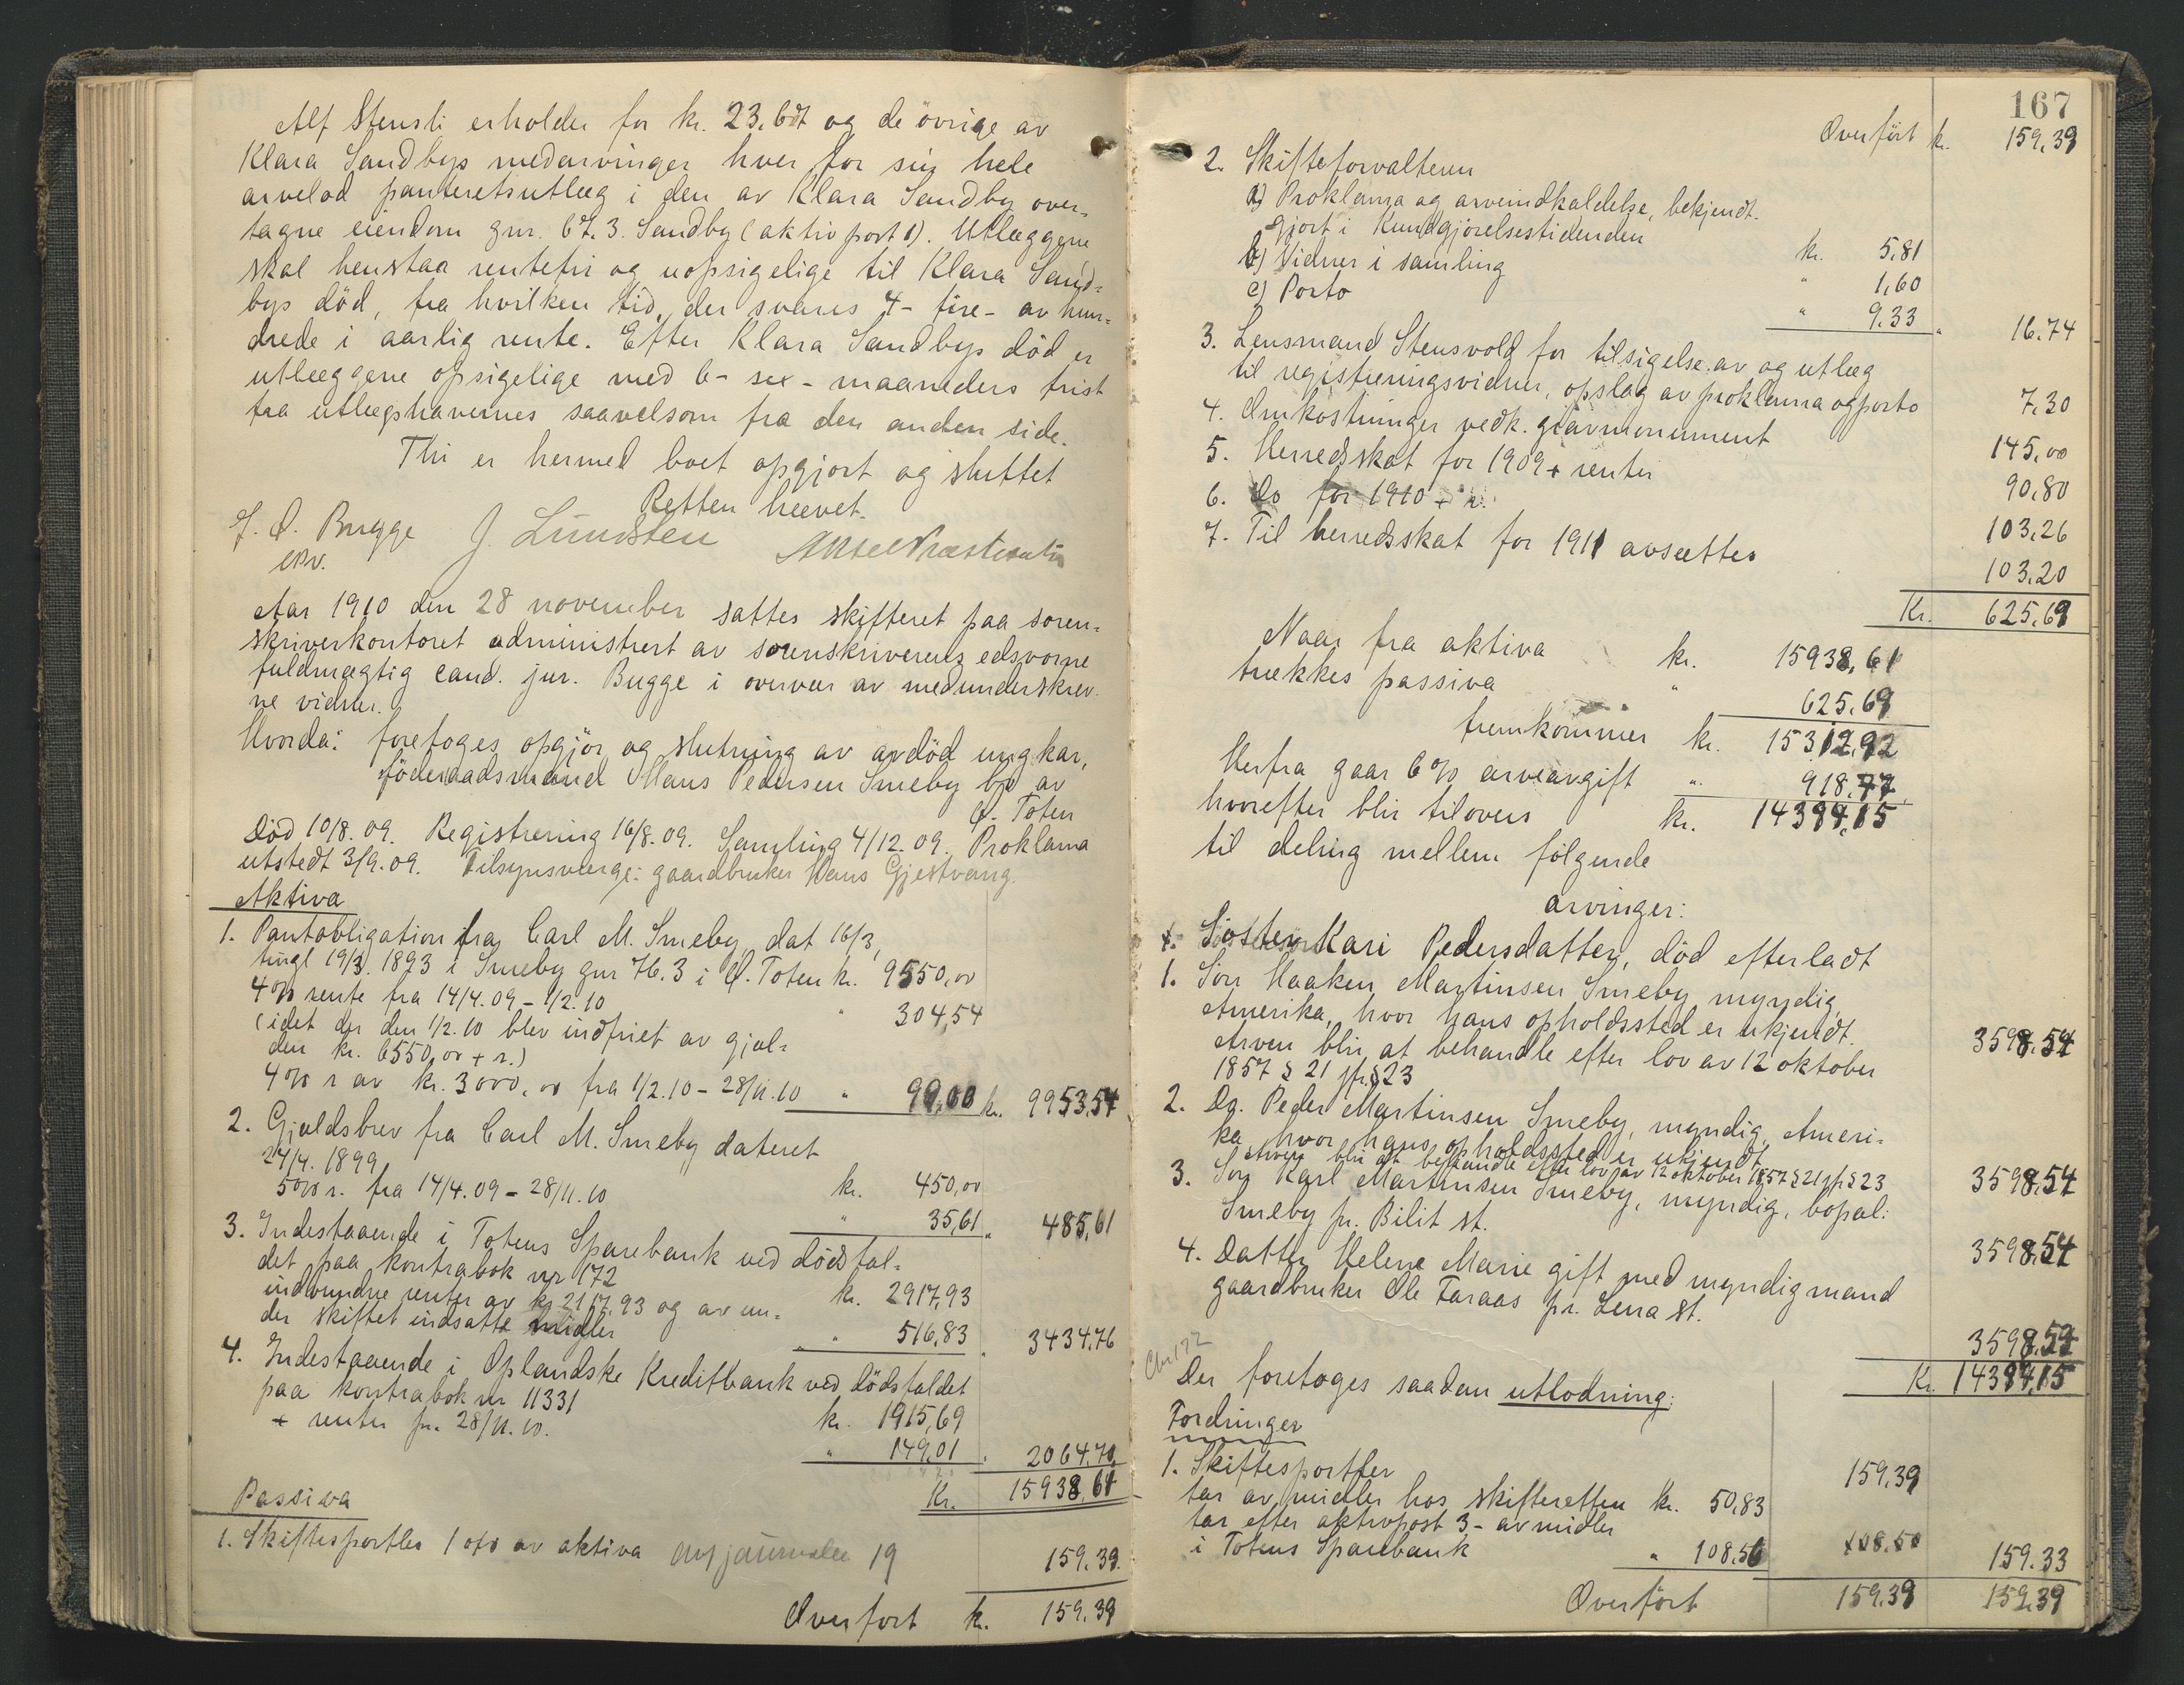 Alf Stensli erholder for kr. 23,67 og de övrige av
Klara Sandbys medarvinger hver for sin hele
arvelod panteretsutlæg i den av Klara Sandby over-
tagne eiendom gnr. 67. 3. Sandby (aktiv post 1). Utlæggene
skal henstaa rentefri og uopsigelige til Klara Sand-
bys död, fra hvilken tid der svares 4 - fire - av hun-
drede i aarlig rente. Efter Klara Sandbys död er
utlæggene opsigelige med 6 - sex - maaneders frist
fra utlægshavernes saavelsom fra den anden side.
Thi er hermed boet opgjort og sluttet
Retten hævet.
J. Q. Bugge J. Lundsten
edsv.
Aar 1910 den 28 november sattes skifteret paa soren-
skriverkontoret administrert av sorenskriverens edsvorne
fuldmægtig cand. jur. Bugge i overvær av medunderskrev-
ne vidner.
Hvorda: foretoges opgjör og slutning av avdöd ungkar,
föderaadsmand Hans Pedersen Smeby bo av
Ö. Toten
Död 10/8. 09. Registrering 16/8. 09. Samling 4/12. 09. Proklama
utstedt 3/9. 09. Tilsynsværge: gaardbruker Hans Gjestvang.
Aktiva
1. Pantobligation fra Carl M. Smeby, dat 16/3,
tingl 19/3. 1893 i Smeby gnr 76. 3 i Ö. Toten kr. 9550,00
4 % rente fra 14/4. 09 - 1/2. 10 " 304,54
(idet der den 1/2. 10 blev indfriet av gjæl-
den kr. 6550,00 + r.)
4 % r av kr. 3000,00 fra 1/2. 10 - 28/11. 10 " 99,00 kr. 9953,54
2. Gjældsbrev fra Carl M. Smeby dateret
24/4. 1899 kr. 450,00
5 % r. fra 14/4. 09 - 28/11. 10 " 35,61 " 485,61
3. Indestaaende i Totens Sparebank ved dödsfal-
det paa kontrabok nr 172 kr. 2917,93
indvundne renter av kr. 2117,93 og av un-
der skiftet indsatte midler " 516,83 " 3434,76
4. Indestaaende i Oplandske Kreditbank ved dödsfaldet
paa kontrabok nr 11331 kr. 1915,69
+ renter pr. 28/11. 10. " 149,01 " 2064,70
Kr. 15938,61
Passiva
1. Skiftesportler 1 % av aktiva 19 159,39
Overfört kr. 159,39
167
Overfört kr. 159,39
2. Skifteforvalteren
a) Proklama og arveindkaldelse, bekjendt-
gjort i Kundgjörelsestidenden kr. 5,81
b) Vidner i samling " 1,60
c) Porto " 9,33 " 16.74
3. Lensmand Stensvold for tilsigelse av og utlæg
til registreringsvidner, opslag av proklama og porto 7,30
4. Omkostninger vedk. gravmonument 145,00
5. Herredsskat for 1909 + renter 90,80
6. Do for 1910 + r. 103,26
7. Til herredsskat for 1911 avsættes 103,20
Kr. 625,69
Naar fra aktiva kr. 15938,61
trækkes passiva " 625,69
fremkommer kr. 15312,92
Herfra gaar 6 % arveavgift " 918,77
hvorefter blir tilovers kr. 14394,15
til deling mellem fölgende
arvinger:
Söster Kari Pedersdatter, död efterladt
1. Sön Haaken Martinsen Smeby, myndig,
Amerika, hvor hans opholdssted er ukjendt.
Arven blir at behandle efter lov av 12 oktober
1857 § 21 jfr. § 23 3598,54
2. Do. Peder Martinsen Smeby, myndig, Ameri-
ka, hvor hans opholdssted er ukjendt.
Arven blir at behandle efter lov av 12 oktober 1857 § 21 jfr § 23 3598,54
3. Sön Karl Martinsen Smeby, myndig, bopæl:
Smeby pr. Bilit st. 3598,54
4. Datter Helene Marie gift med myndig mand
gaardbruker Ole Faraas pr. Lena st. 3598,54
Kr. 14394,15
Der foretoges saadan utlodning:
Fordringer
1. Skiftesportler 159,39
tar av midler hos skifteretten kr. 50,83
tar efter aktivpost 3 - av midler
i Totens Sparebank " 108,56 108.50 159.33
Overfört 159,39 159,39